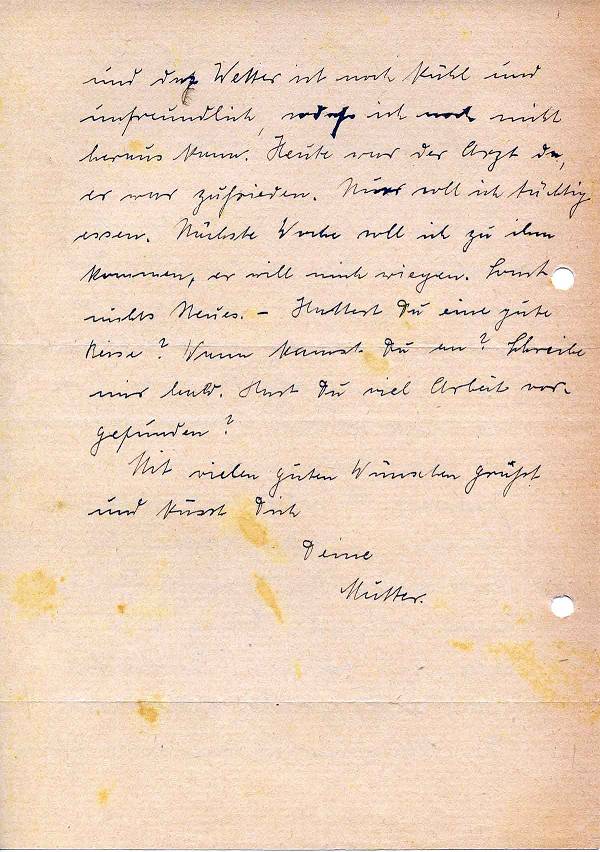 und das Wetter ist noch kühl und
unfreundlich, sodaß ich noch nicht
heraus kann. Heute war der Arzt da,
er war zufrieden. Nur soll ich tüchtig
essen. Nächste Woche soll ich zu ihm
kommen, er will mich wiegen. Sonst
nichts Neues. – Hattest Du eine gute
Reise? Wann kamst Du an? Schreibe
mir bald. Hast Du viel Arbeit vor-
gefunden?
Mit vielen guten Wünschen grüßt
und küsst Dich
Deine
Mutter.